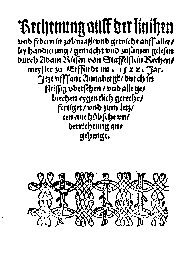 Rechenung auff der linihen
vnd federn in zal/maß/ vnd gewicht auff aller
ley handierung/ gemacht vnd zusamen gelesen
durch Adam Riesen von Staffelstein Rechen
meyster zu Erffurdt im. 1522. Jar.
Itzt vff sant Annabergk/ durch in
fleyssig vbersehen/ vnd alle ge
brechen eygentlich gerecht
fertiget/ vnd zum letz
ten eine hübsche vn
derrichtung an
gehengt.